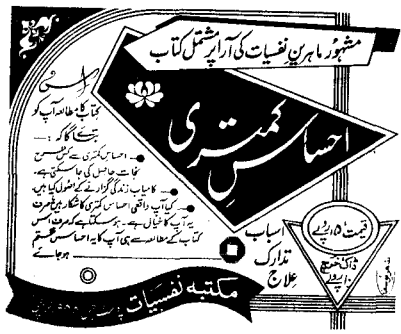 مشہور ماہرینِ نفسیات کی آرا پر مشتمل کتاب
احساسِ کمتری
اس
کتاب کا مطالعہ آپ کو
بتائے گا کہ:—
احساسِ کمتری سے کس طرح
نجات حاصل کی جا سکتی ہے۔
کامیاب زندگی گزارنے کے اصول کیا ہیں۔
کیا آپ واقعی احساسِ کمتری کا شکار ہیں یا صرف
یہ آپ کا خیال ہے۔ ہو سکتا ہے کہ صرف اس
کتاب کے مطالعہ سے ہی آپ کا یہ احساس ختم
ہو جائے
اسباب
تدارک
علاج
قیمت ۱۵ روپے
ڈاک خرچ
روپے
مکتبہ نفسیات